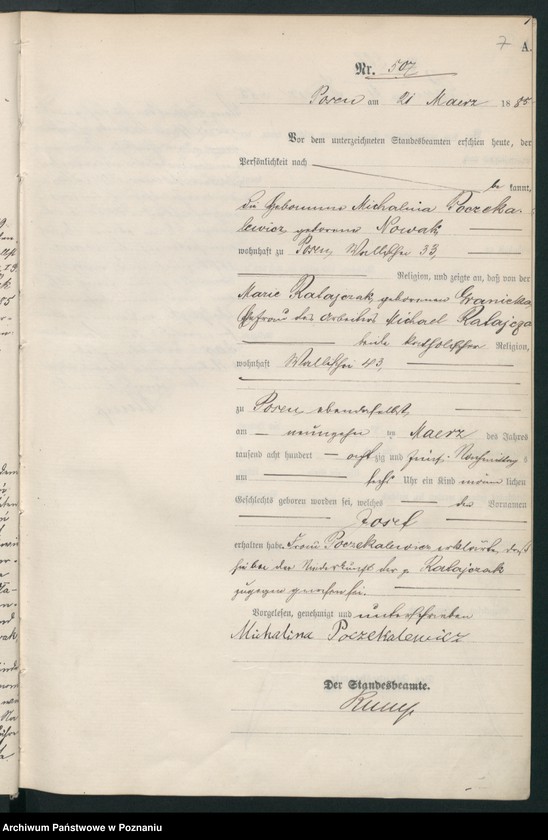 7 A.
Nr. 507
Posen am 21 Maerz 1885
Vor dem unterzeichneten Standesbeamten erschien heute, der
Persönlichkeit nach
be kannt,
die Hebamme Michalina Poczeka-
lewicz geborene Nowak
wohnhaft zu Posen, Wallischei 33,
Religion, und zeigte an, daß von der
Marie Ratajczak, geborenen Granicka
Ehefrau des Arbeiters Michael Ratajcza
beide katholischer Religion,
wohnhaft Wallischei 43,
zu Posen ebendaselbst,
am neunzehn ten Maerz des Jahres
tausend acht hundert achtzig und fünf, Nachmittag s
um sechs Uhr ein Kind männlichen
Geschlechts geboren worden sei, welches den Vornamen
Josef
erhalten habe. Frau Poczekalewicz erklärte, daß
sie bei der Niederkunft der p. Ratajczak
zugegen gewesen sei.
Vorgelesen, genehmigt und unterschrieben
Michalina Poczekalewicz
Der Standesbeamte.
Archiwum Państwowe w Poznaniu